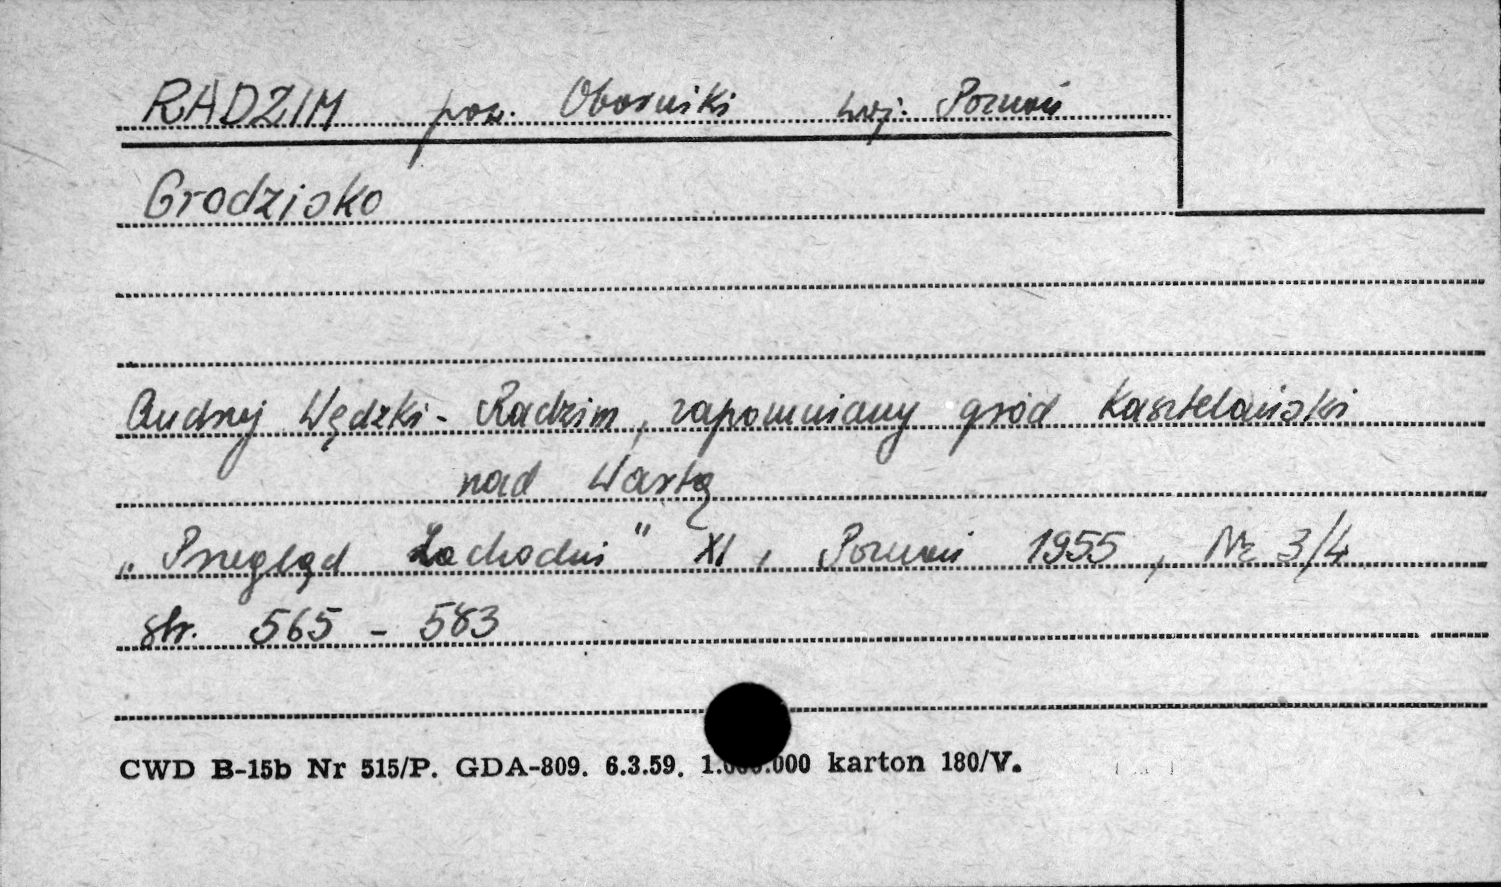 RADZIM pow. Oborniki woj. Poznań
Grodzisko
Andrzej Wędzki - Radzim, zapomniany gród kasztelański
nad Wartą
„Przegląd Zachodni" XI, Poznań 1955, Nr 3/4
str. 565 - 583
CWD B-15b Nr 515/P. GDA-809. 6.3.59. 1.000.000 karton 180/V.